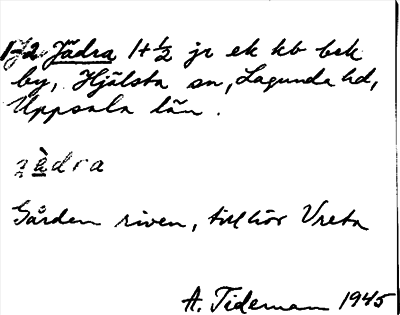 1-2 Jädra 1+½ jr ek kb bek
by, Hjälsta sn, Lagunda hd,
Uppsala län.
Gården riven, tillhör Vreta
A. Tideman 1945